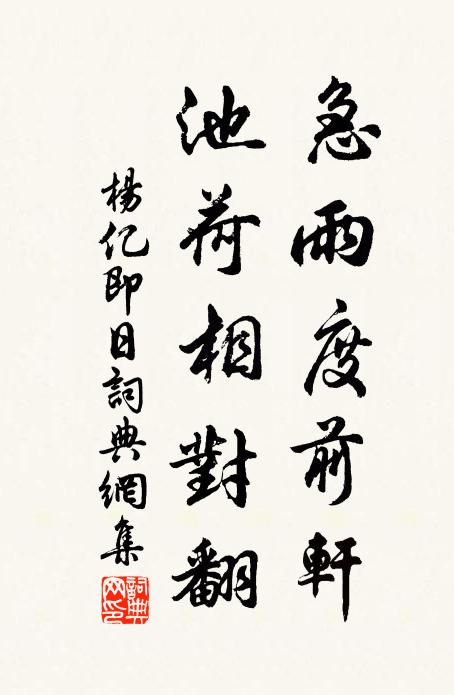 急雨度前軒
池荷相對翻
楊亿即日詞典網集
詞典网印